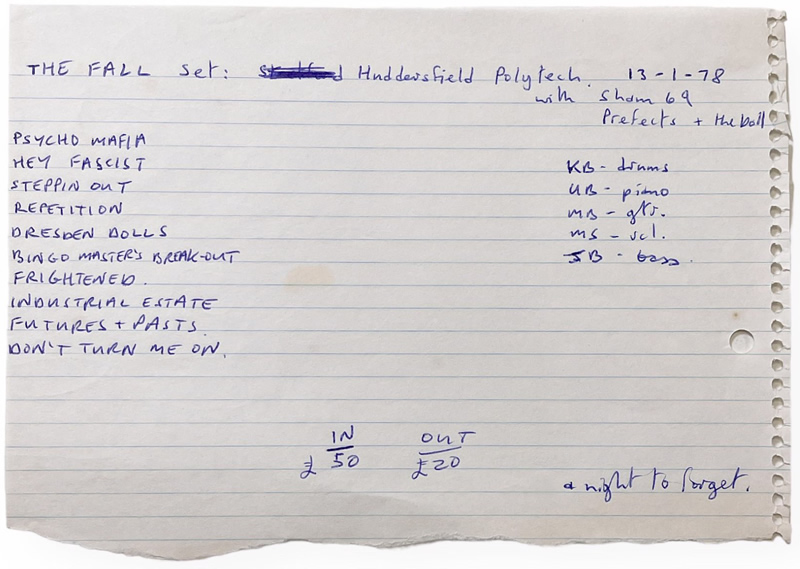 THE FALL set: Huddersfield Polytech. 13-1-78
with Sham 69
Prefects + the Doll
PSYCHO MAFIA
HEY FASCIST
STEPPIN OUT
REPETITION
DRESDEN DOLLS
BINGO MASTER'S BREAK-OUT
FRIGHTENED.
INDUSTRIAL ESTATE
FUTURES + PASTS.
DON'T TURN ME ON.
KB - drums
UB - piano
MB - gts.
MS - vcl.
JB - bass.
IN
£50
OUT
£20
a night to forget.